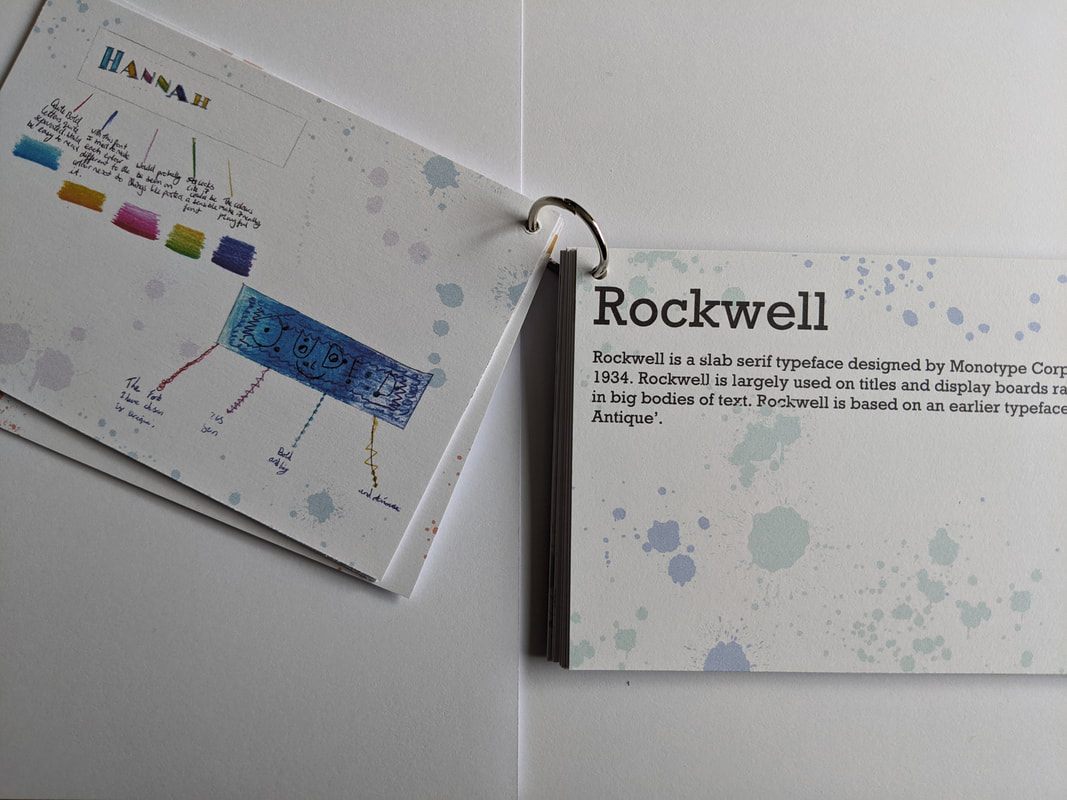 HANNAH
Quite Bold
Letters quite
separated would
be easy to read
with this font
I need to make
each colour
different to the
colour next to
it.
Would probably
be been on
things like posters
looks
like it
would be
a
font
The colours
make it really
playful
The Font
I have chosen
is unique.
Bold
and
Rockwell
Rockwell is a slab serif typeface designed by Monotype Corp
1934. Rockwell is largely used on titles and display boards ra
in big bodies of text. Rockwell is based on an earlier typeface
Antique’.